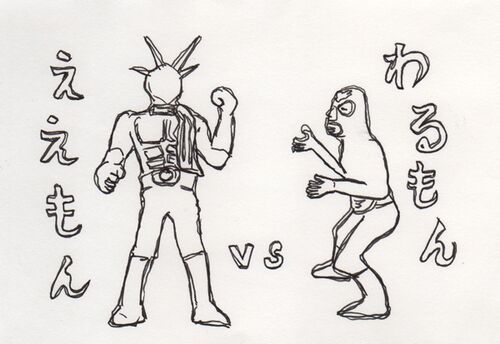 ええもん
vs
わるもん